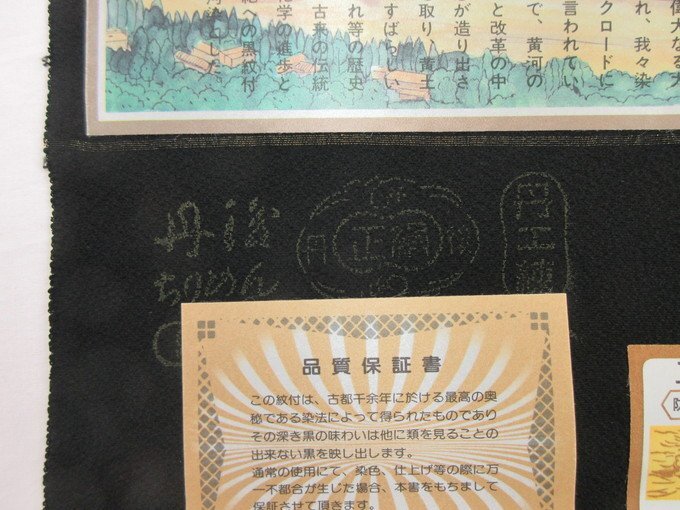 偉大なる大
れ、我々染
クロードに
言われてい
で、黄河の
と改革の中
が造り出さ
取り、黄土
すばらしい
れ等の歴史
古来の伝統
化学の進歩と
への黒紋付
丹後
ちりめん
丹
正絹
後
品質保証書
この紋付は、古都千余年に於ける最高の奥
秘である染法によって得られたものであり
その深き黒の味わいは他に類を見ることの
出来ない黒を映し出します。
通常の使用にて、染色、仕上げ等の際に万
一不都合が生じた場合、本書をもちまして
保証させて頂きます。